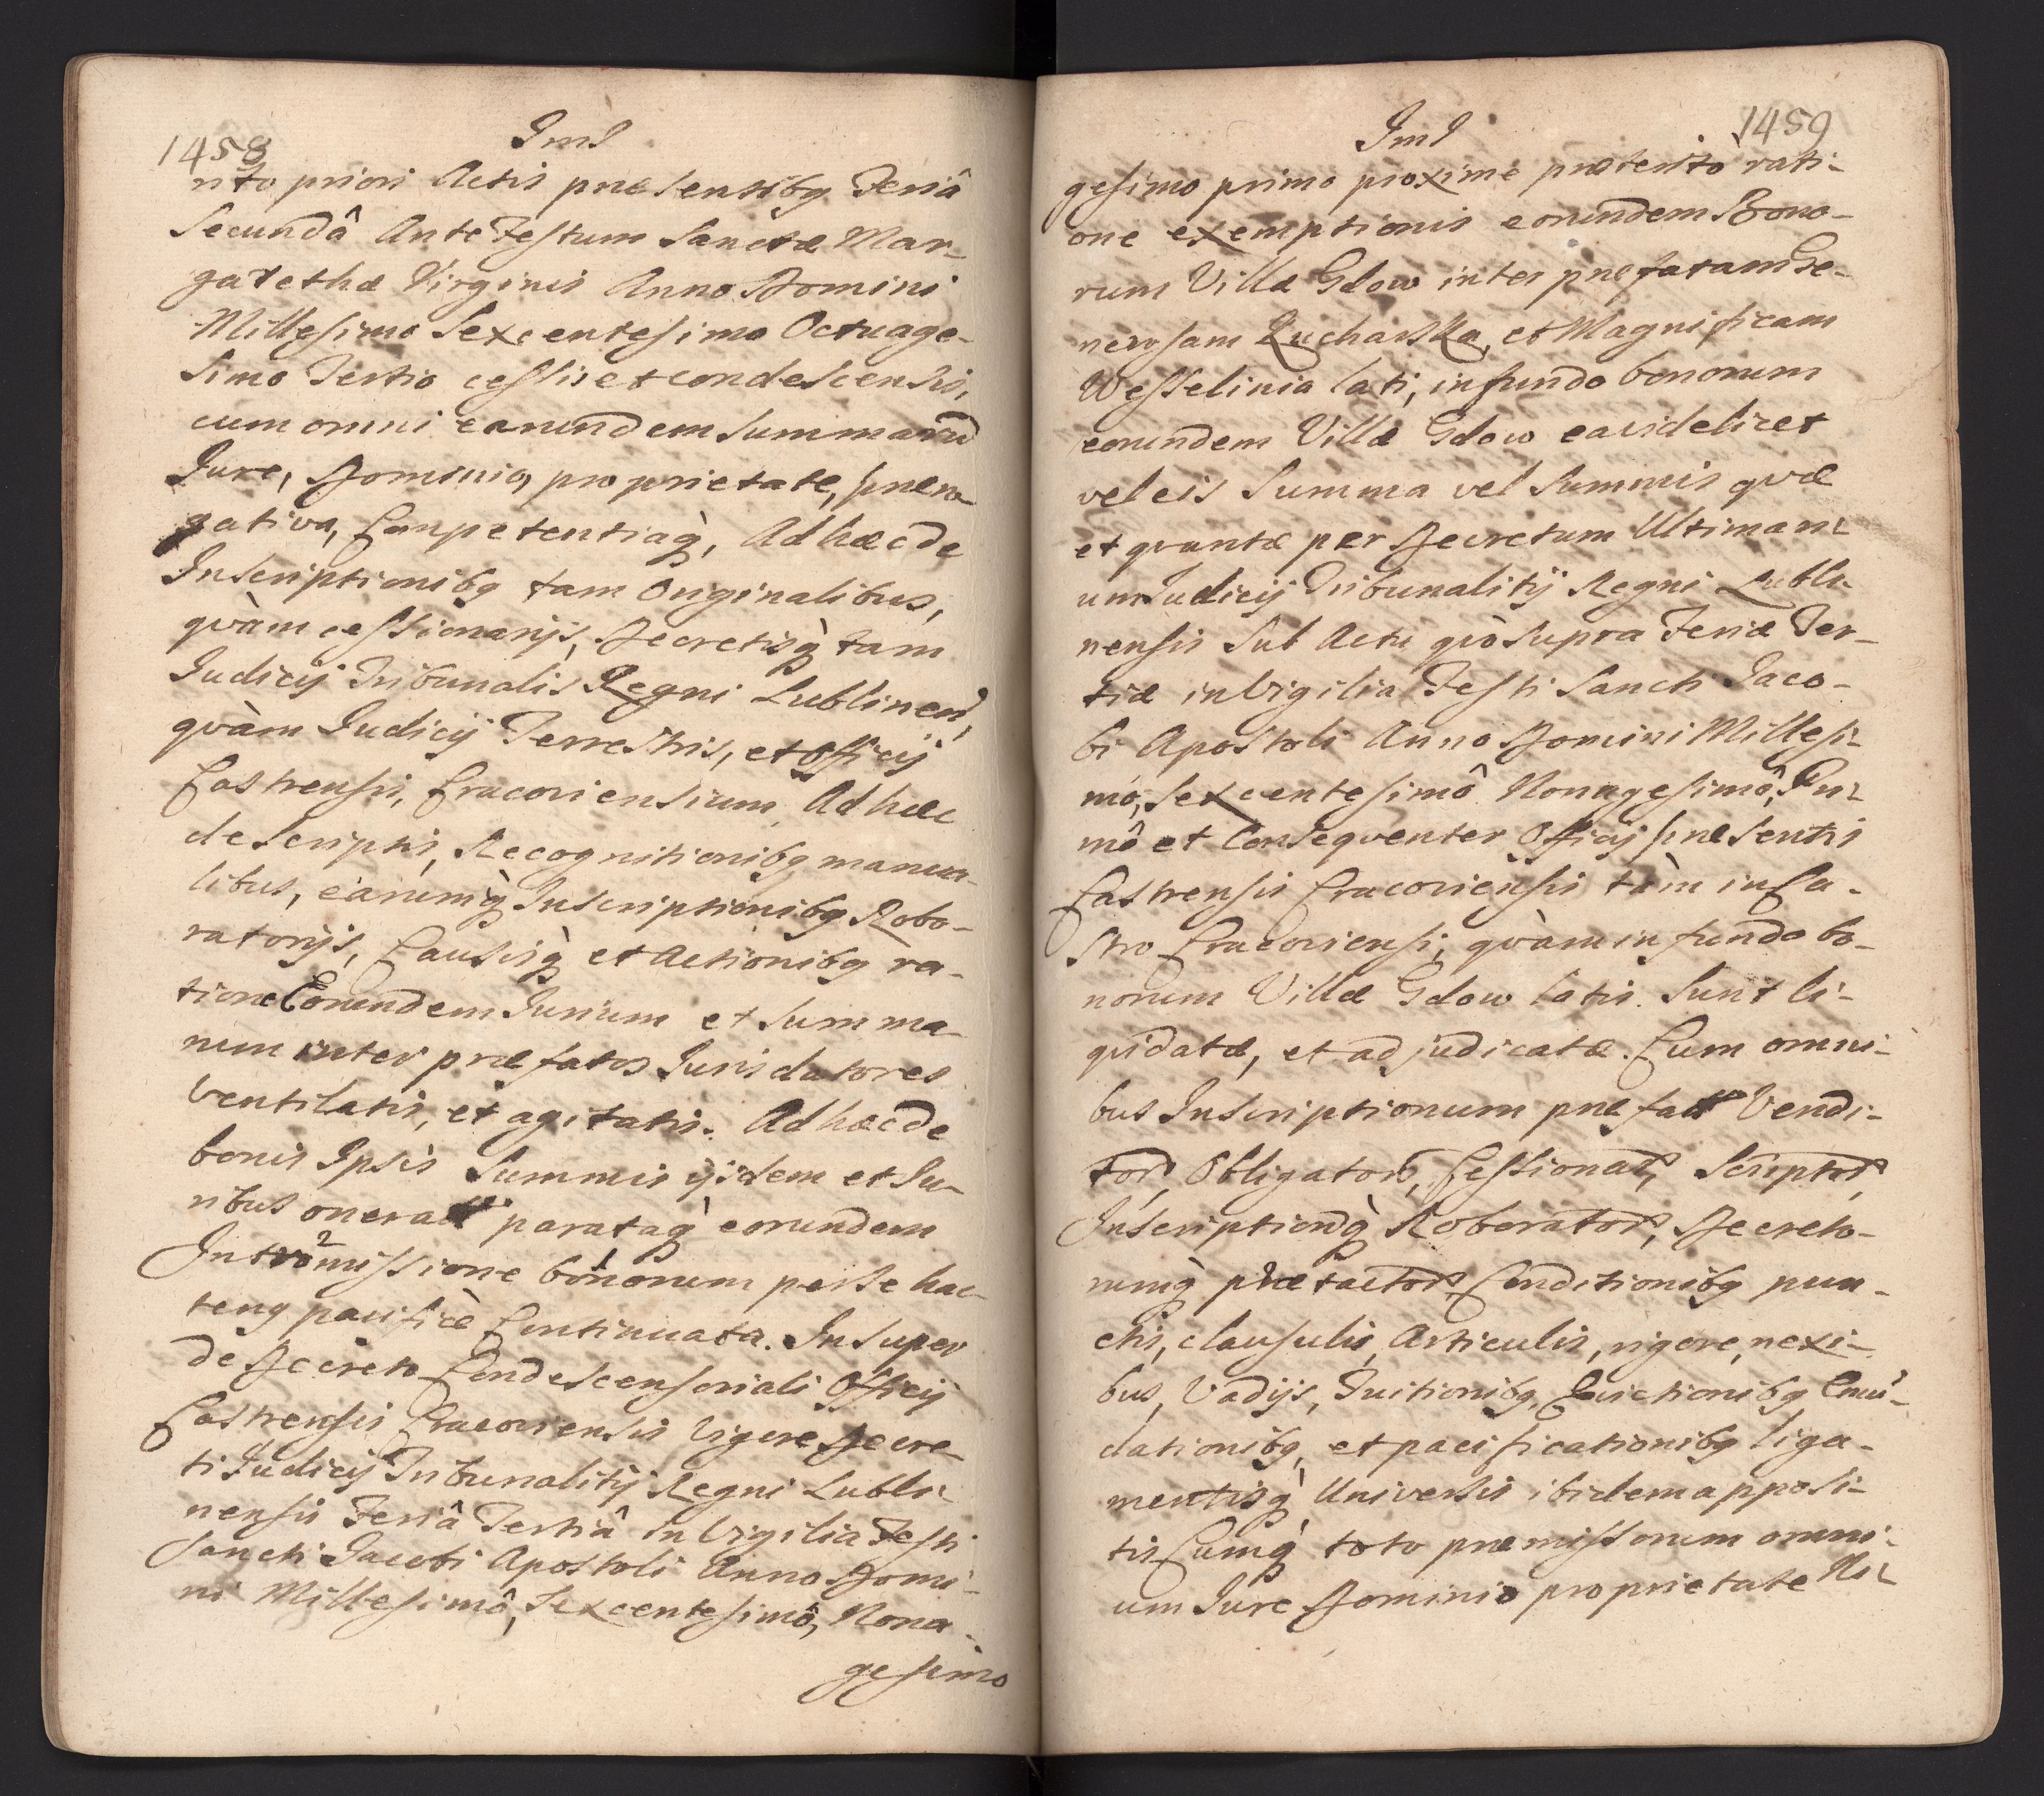 1458
Iml
nto priori Actis præsentibq Feriâ
Secundâ Ante Festum Sanctæ Mar-
garethæ Virginis Anno Domini
Millesimo Sexcentesimo Octuage-
simo Tertio cessis et condescensis,
cum omni earundem Summarū
Jure, Dominio, proprietate, præro-
gativa, Competentiaq̀, Ad hæc de
Inscriptionibq tam Originalibus,
qvàm cessionarijs, Decretisq̀ tam
Judicij Tribunalis Regni Lublinen,
qvàm Judicij Terrestris, et Officij
Castrensis, Cracoviensium, Ad hæc
de Scriptis, Recognitionibq manua-
libus, earumq̀ Inscriptionibq Robo-
ratorijs, Causisq̀ et Actionibq ra-
tione Eorundem Jurium et Summa-
rum inter præfatos Jurisdatores
Ventilatis, et agitatis. Ad hæc de
bonis Ipsis Summis ijsdem et Ju-
ribus onerat parataq̀ eorundem
Intromissione bonorum per se hac-
tenq pacificè Continuata. Insuper
de Decreto Condescensoriali Officij
Castrensis Cracoviensis Vigore Decre-
ti Judicij Tribunalitij Regni Lubli-
nensis Feriâ Tertiâ in Vigilia Festi
Sancti Jacobi Apostoli Anno Domi-
ni Millesimô, Sexcentesimô, Nona-
gesimo
1459
Iml
gesimo primo proxime præterito rati-
one exemptionis eorundem Bono-
rum Villæ Gdow inter præfatam Ge-
nerosam Rucharska, et Magnificam
Wesselinia lati, in fundo bonorum
eorundem Villæ Gdow ea videlicet
vel eis Summa vel Summis qvæ
et qvantæ per Decretum Ultimari-
um Judicij Tribunalitij Regni Lubli-
nensis Sub Actu qvò supra Feriæ Ter-
tiæ in Vigilia Festi Sancti Jaco-
bi Apostoli Anno Domini Millesi-
mo, Sexcentesimô Nonagesimô, Pri-
mô et Conseqventer Officij præsentis
Castrensis Cracoviensis tàm in Ca-
stro Cracoviensi, qvàm in fundo bo-
norum Villæ Gdow latis. Sunt li-
qvidatæ, et adjudicatæ. Cum omni-
bus Inscriptionum præfat Vendi-
tor, Obligator, Cessionar, Scriptor,
Inscriptionq̀ Roborator, Decreto-
rumq̀ prætactor Conditionibq pun-
ctis, clausulis, Articulis, rigore, nexi-
bus, Vadijs, Tuitionibq, Evictionibq Emū-
dationibq, et pacificationibq liga-
mentisq̀ Universis ibidem apposi-
tis Cumq̀ toto præmissorum omni-
um Jure Dominio proprietate Ni-